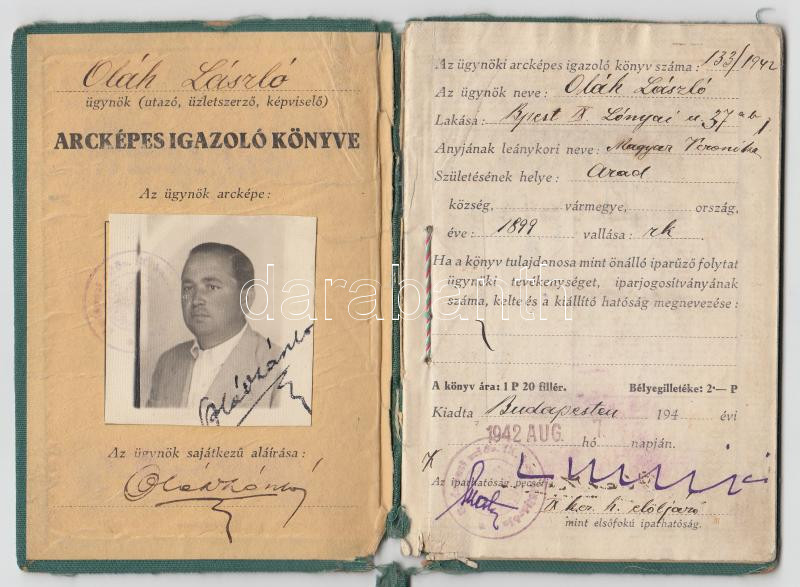 Oláh László
ügynök (utazó, üzletszerző, képviselő)
ARCKÉPES IGAZOLÓ KÖNYVE
Az ügynök arcképe:
Oláh László
Az ügynök sajátkezű aláírása:
Oláh László
Az ügynöki arcképes igazoló könyv száma: 133/1942
Az ügynök neve: Oláh László
Lakása: Bpest IX Lónyai u 37
Anyjának leánykori neve: Magyar Veronika
Születésének helye: Arad
község, vármegye, ország,
éve: 1899 vallása: rk.
Ha a könyv tulajdonosa mint önálló iparűző folytat
ügynöki tevékenységet, iparjogosítványának
száma, kelte és a kiállító hatóság megnevezése:
A könyv ára: 1 P 20 fillér. Bélyegilletéke: 2·— P
Kiadta Budapesten 194 évi
1942 AUG. 7
hó napján.
Az iparhatóság pecsétje
ker. h. elöljáró
mint elsőfokú iparhatóság.
darabanth